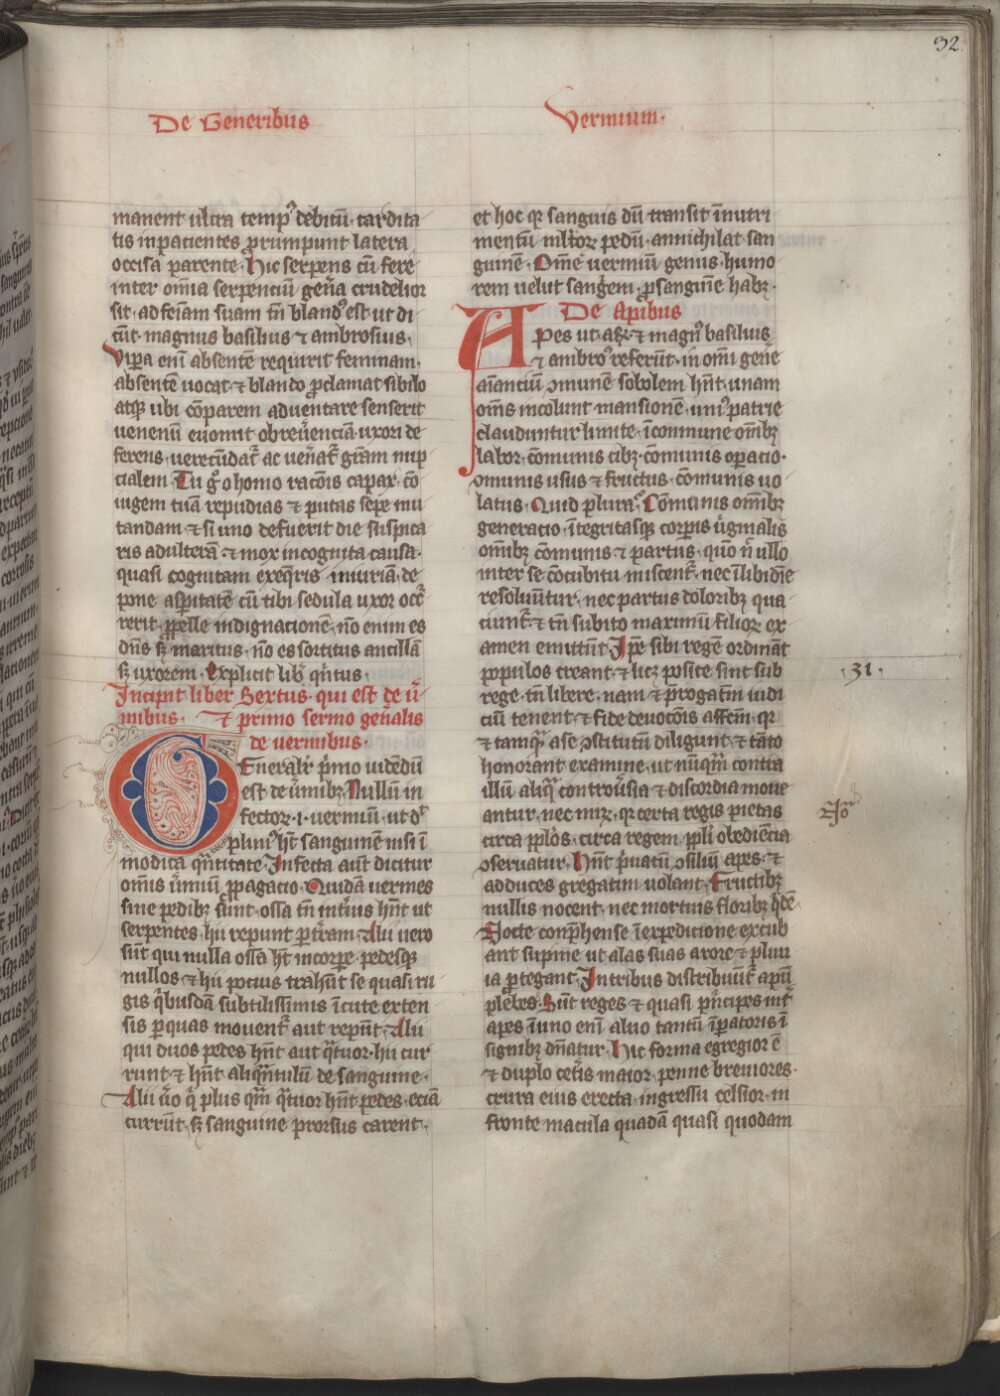 32
De Generibus
Vermium.
manent ultra temp⁹ debitū. tardita
tis inpatientes prorumpunt latera
occisa parente. Hic serpens cū fere
inter om̄ia serpenciū gen̄a crudelior
sit. ad feīam suam tn̄ bland⁹ est ut di
cūt. magnus basilius ⁊ ambrosius.
Vipa enī absentē requirit feminam.
absentē uocat. ⁊ blando ꝓclamat sibilo
atqꝫ ubi cōparem aduentare senserit
uenenū euomit ob reūenciā uxori de
ferens. uerecūdat᷑ ac uen̄at᷑ gr̄am nup
cialem. Tu gͦ o homo racōis capax. cō
iugem tuā repudias ⁊ putas sepe mu
tandam. ⁊ si uno defuerit die suspica
ris adulterā. ⁊ mox incognita causa.
quasi cognitam exeq̄ris iniuriā. de
pone asꝑitatē cū tibi sedula uxor occ̄
rerit. ꝓpelle indignacionē. nō enim es
dn̄s sꝫ maritus. nō es sortitus ancillā
sꝫ uxorem. Explicit lib̄ qn̄tus.
Incipit liber Sextus. qui est de ū
mibus. Et primo sermo gen̄alis
de uermibus.
Eneralr̄ pͥmo uidēdū
est de ūmibꝫ. Nullū in
fector. i. uermiū. ut dͭ
pliniꝰ hn̄t sanguinē nisi ī
modica qn̄titate. Infecta aūt dicitur
om̄is ūmiū ꝓpagacio. Quidā uermes
sine pedibꝫ sūnt. ossa tn̄ int̄ius hn̄t ut
serpentes. hii repunt ꝑ tr̄am. Alii uero
sūt qui nulla ossa hn̄t in corpe. pedesqꝫ
nullos. ⁊ hii pocius trahūt se quasi ru
gis qͥbusdā subtilissimis ī cute exten
sis ꝑ quas mouent᷑ aut repūt. Alii
qui duos pedes hn̄t aut qͣtuor. hii cur
runt ⁊ hn̄t aliqͣntulū de sanguine.
Alii ūo qͥ plus qͣm qͣtuor hn̄t pedes. eciā
currūt. sꝫ sanguine prorsus carent.
et hoc qꝛ sanguis dū transit ī nutri
mentū ml̄toꝝ pedū. annichilat san
guinē. Om̄e uermiū genus. humo
rem uelut sanḡem. ꝓ sanguine habꝫ.
De Apibus
APes ut. aꝶ. ⁊ magn⁹ basilius
⁊ ambroꝰ referūt. in om̄i gen̄e
aīanciū ꝯmunē sobolem hn̄t. unam
om̄s incolunt mansionē. uni⁹ patrie
clauduntur limite. ī commune om̄ibꝫ
labor. cōmunis cibꝫ. cōmunis oꝑacio.
ꝯmunis usus ⁊ fructus. cōmunis uo
latus. Quid plura. Cōmunis om̄ibꝫ
generacio. ītegritasqꝫ corꝑis ūginalis
om̄ibꝫ cōmunis ⁊ partus. quō n̄ ullo
inter se cōcubitu miscent᷑. nec ī libidīe
resoluūtur. nec partus doloribꝫ qua
ciunt᷑ ⁊ tn̄ subito maximū filioꝝ ex
amen emittūt. Ip̄e sibi regē ordināt
populos creant. ⁊ licꝫ posite sint sub
rege. tn̄ libere. nam ⁊ ꝑrogatīm iudi
ciū tenent. ⁊ fide deuocōis affc̄m. qꝛ
⁊ tamqͣ a se ꝯstitutū diligunt. ⁊ tāto
honorant examine. ut nūqͣm contra
illū aliqͣ controūsia ⁊ discordia moue
antur. nec mirꝫ. qꝛ certa regis pietas
circa ppl̄os. circa regem. ppl̄i obediēcia
ꝯseruatur. Hn̄t pͥuatū ꝯsiliū apes. ⁊
ad duces gregatim uolant. Fructibꝫ
nullis nocent. nec mortuis floribꝫ qͥdē.
Nocte conp̄hense ī expedicione excub
ant supine ut alas suas a rore ⁊ pluu
ia ꝓtegant. In tribus distribuūt᷑ apū
plebes. Sūt reges ⁊ quasi pͥncipes int̄
apes. ī uno enī aluo tantū īꝑatoris ī
signibꝫ dn̄atur. Hic forma egregior ē
⁊ duplo cet̄is maior. penne breuiores.
crura eius erecta. ingressu celsior. in
fronte macula quadā quasi quodam
.31.